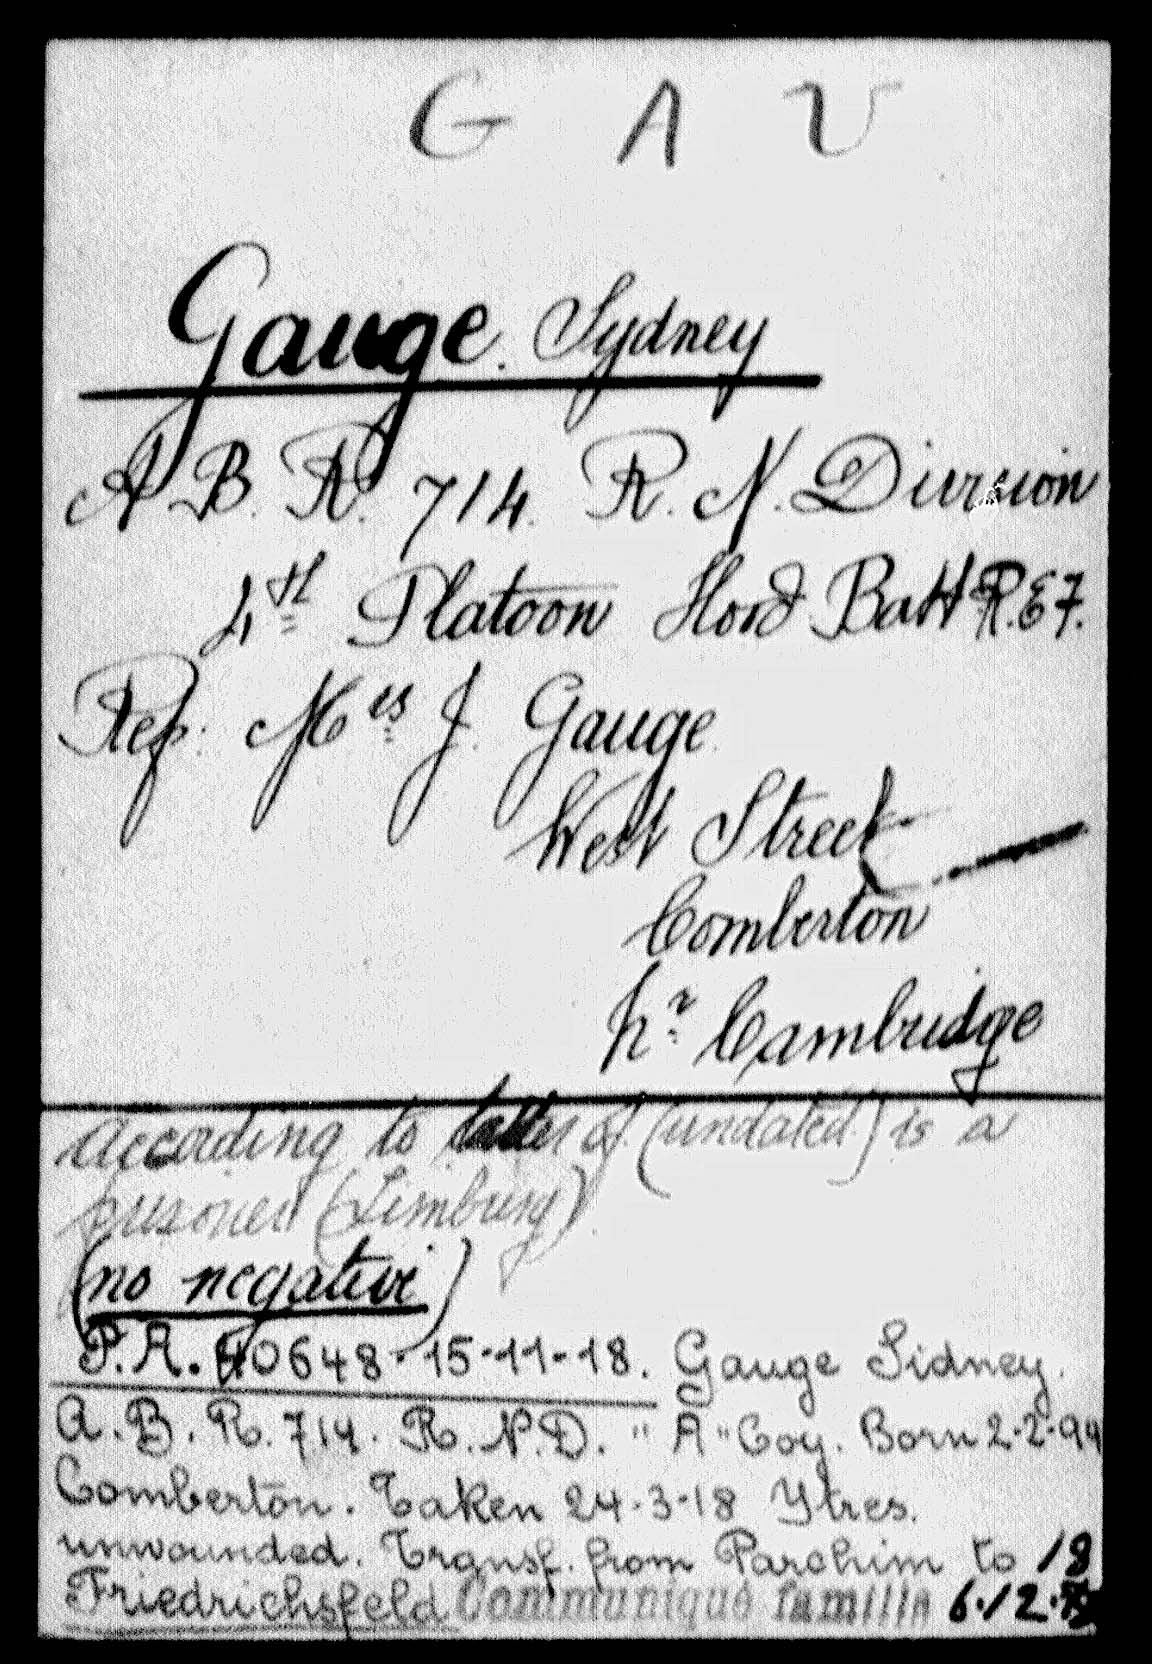 G A U
Gauge. Sydney
A. B. R. 714. R. N. Division
4th Platoon Hord Batt R.E7.
Rep. Mes J. Gauge
West Street
Comberton
Nr. Cambridge
According to letter of (undated) is a
prisoner (Limburg)
(no negative)
P.A. 40648-15-11-18. Gauge Sidney.
A.B. R. 714. R.N.D. "A" Coy. Born 2-2-99
Comberton. Taken 24-3-18 Ytres.
unwounded. Transf. from Parchim to
Friedrichsfeld Communiqué famille 6.12.18